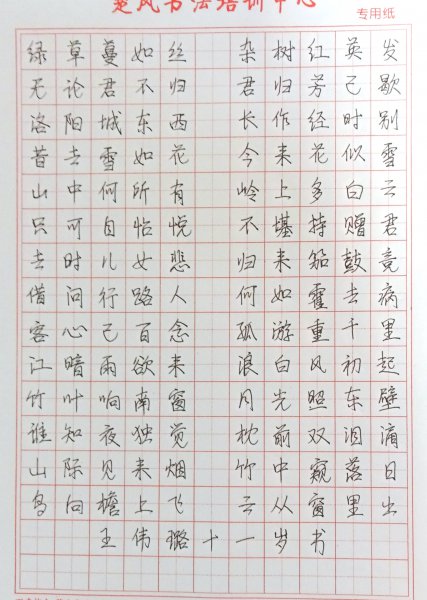 楚风书法培训中心
专用纸
绿草蔓如丝 杂树红英发
无论君不归 君归芳已歇
洛阳城东西 长作经时别
昔去雪如花 今来花似雪
山中何所有 岭上多白云
只可自怡悦 不堪持赠君
去时儿女悲 归来笳鼓竞
借问行路人 何如霍去病
客心已百念 孤游重千里
江暗雨欲来 浪白风初起
竹叶响南窗 月光照东壁
谁知夜独觉 枕前双泪滴
山际见来烟 竹中窥落日
鸟向檐上飞 云从窗里出
王伟璐十一岁书